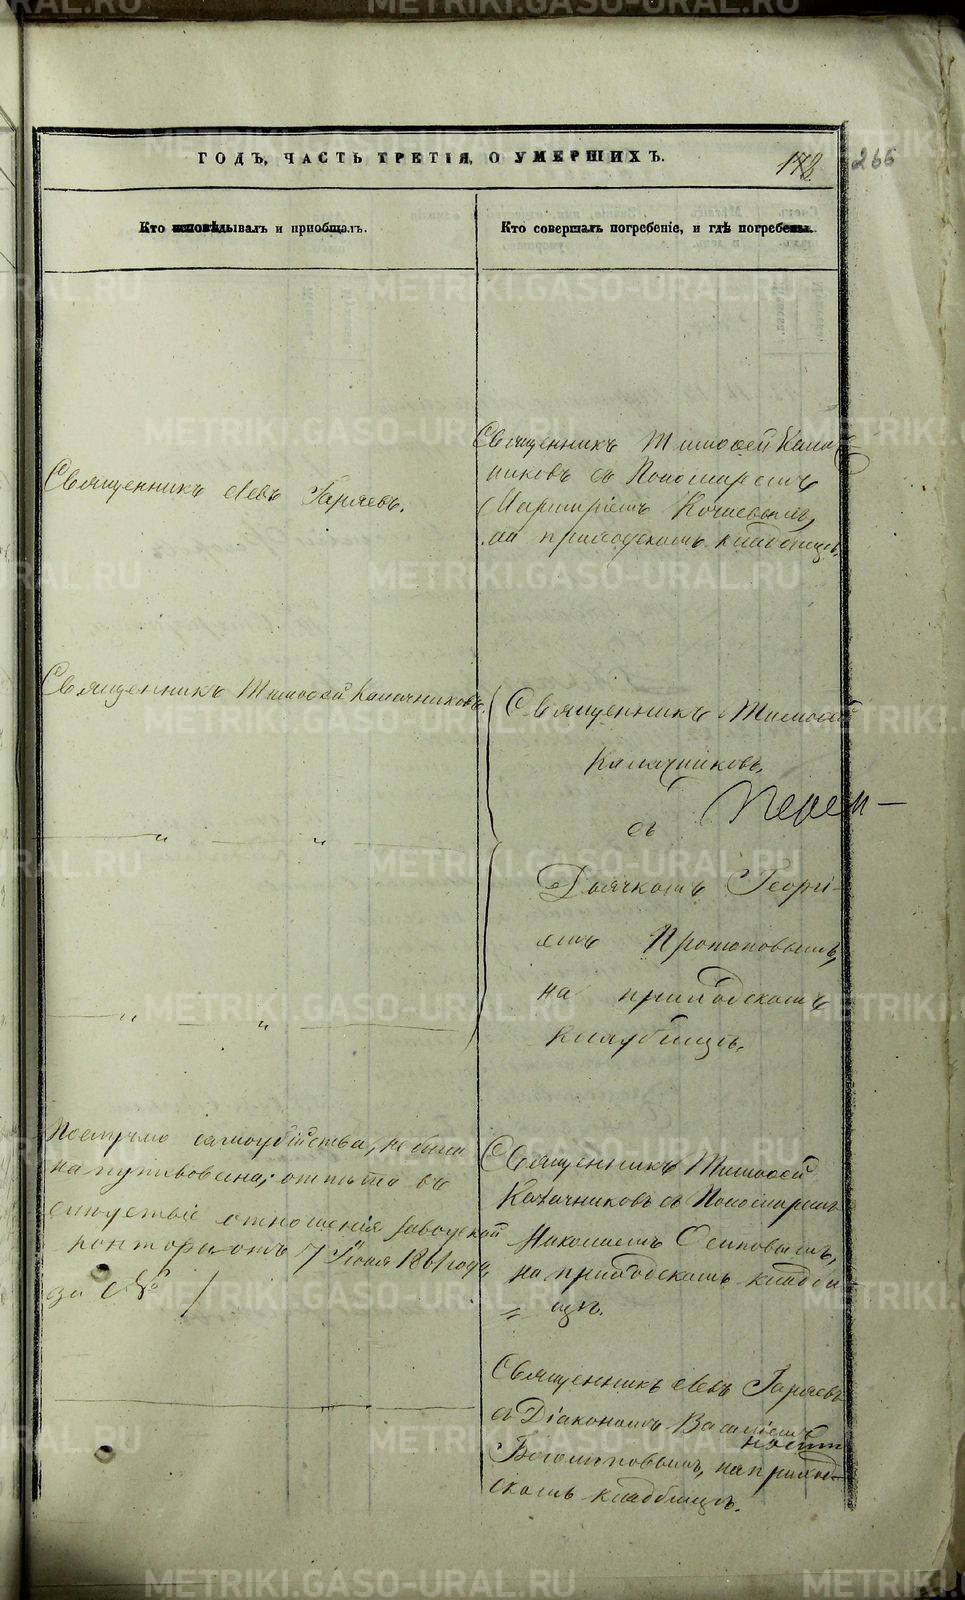 METRIKI.GASO-URAL.RU
ГОДЪ, ЧАСТЬ ТРЕТІЯ, О УМЕРШИХЪ.
266
Кто исповѣдывалъ и приобщалъ.
Кто совершалъ погребеніе, и гдѣ погребены.
Священникъ Левъ Гаряевъ.
Священникъ Тимофей Калач
никовъ съ Пономаремъ
Порфиріемъ
на приходскомъ кладбищѣ.
Священникъ Тимофей Калачниковъ.
Священникъ Тимофей
Калачниковъ,
съ
Дьячкомъ Георгі-
емъ Протоповымъ,
на приходскомъ
кладбищѣ.
самоубійства, не была
напутвована; отпѣта въ
слѣдствіе отношенія Заводской
конторы отъ 7 Іюня 1861 года,
за №
Священникъ Тимофей
Калачниковъ съ Пономаремъ
Николаемъ Осиповымъ,
на приходскомъ кладби
щѣ.
Священникъ Левъ Гаряевъ
съ Діакономъ Василіемъ
на приход
скомъ кладбищѣ.